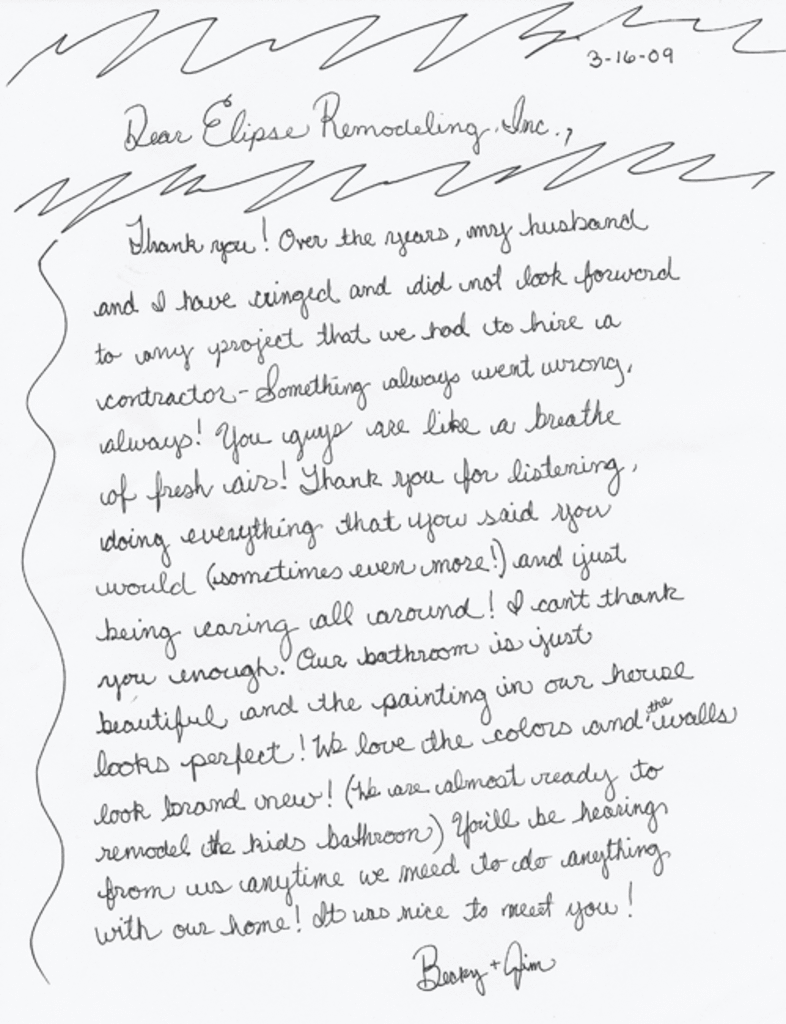 3-16-09
Dear Elipse Remodeling, Inc.,
Thank you! Over the years, my husband
and I have cringed and did not look forward
to any project that we had to hire a
contractor - Something always went wrong,
always! You guys are like a breathe
of fresh air! Thank you for listening,
doing everything that you said you
would (sometimes even more!) and just
being caring all around! I can't thank
you enough. Our bathroom is just
beautiful and the painting in our house
looks perfect! We love the colors and the walls
look brand new! (We are almost ready to
remodel the kids bathroom) You'll be hearing
from us anytime we need to do anything
with our home! It was nice to meet you!
Becky + Jim